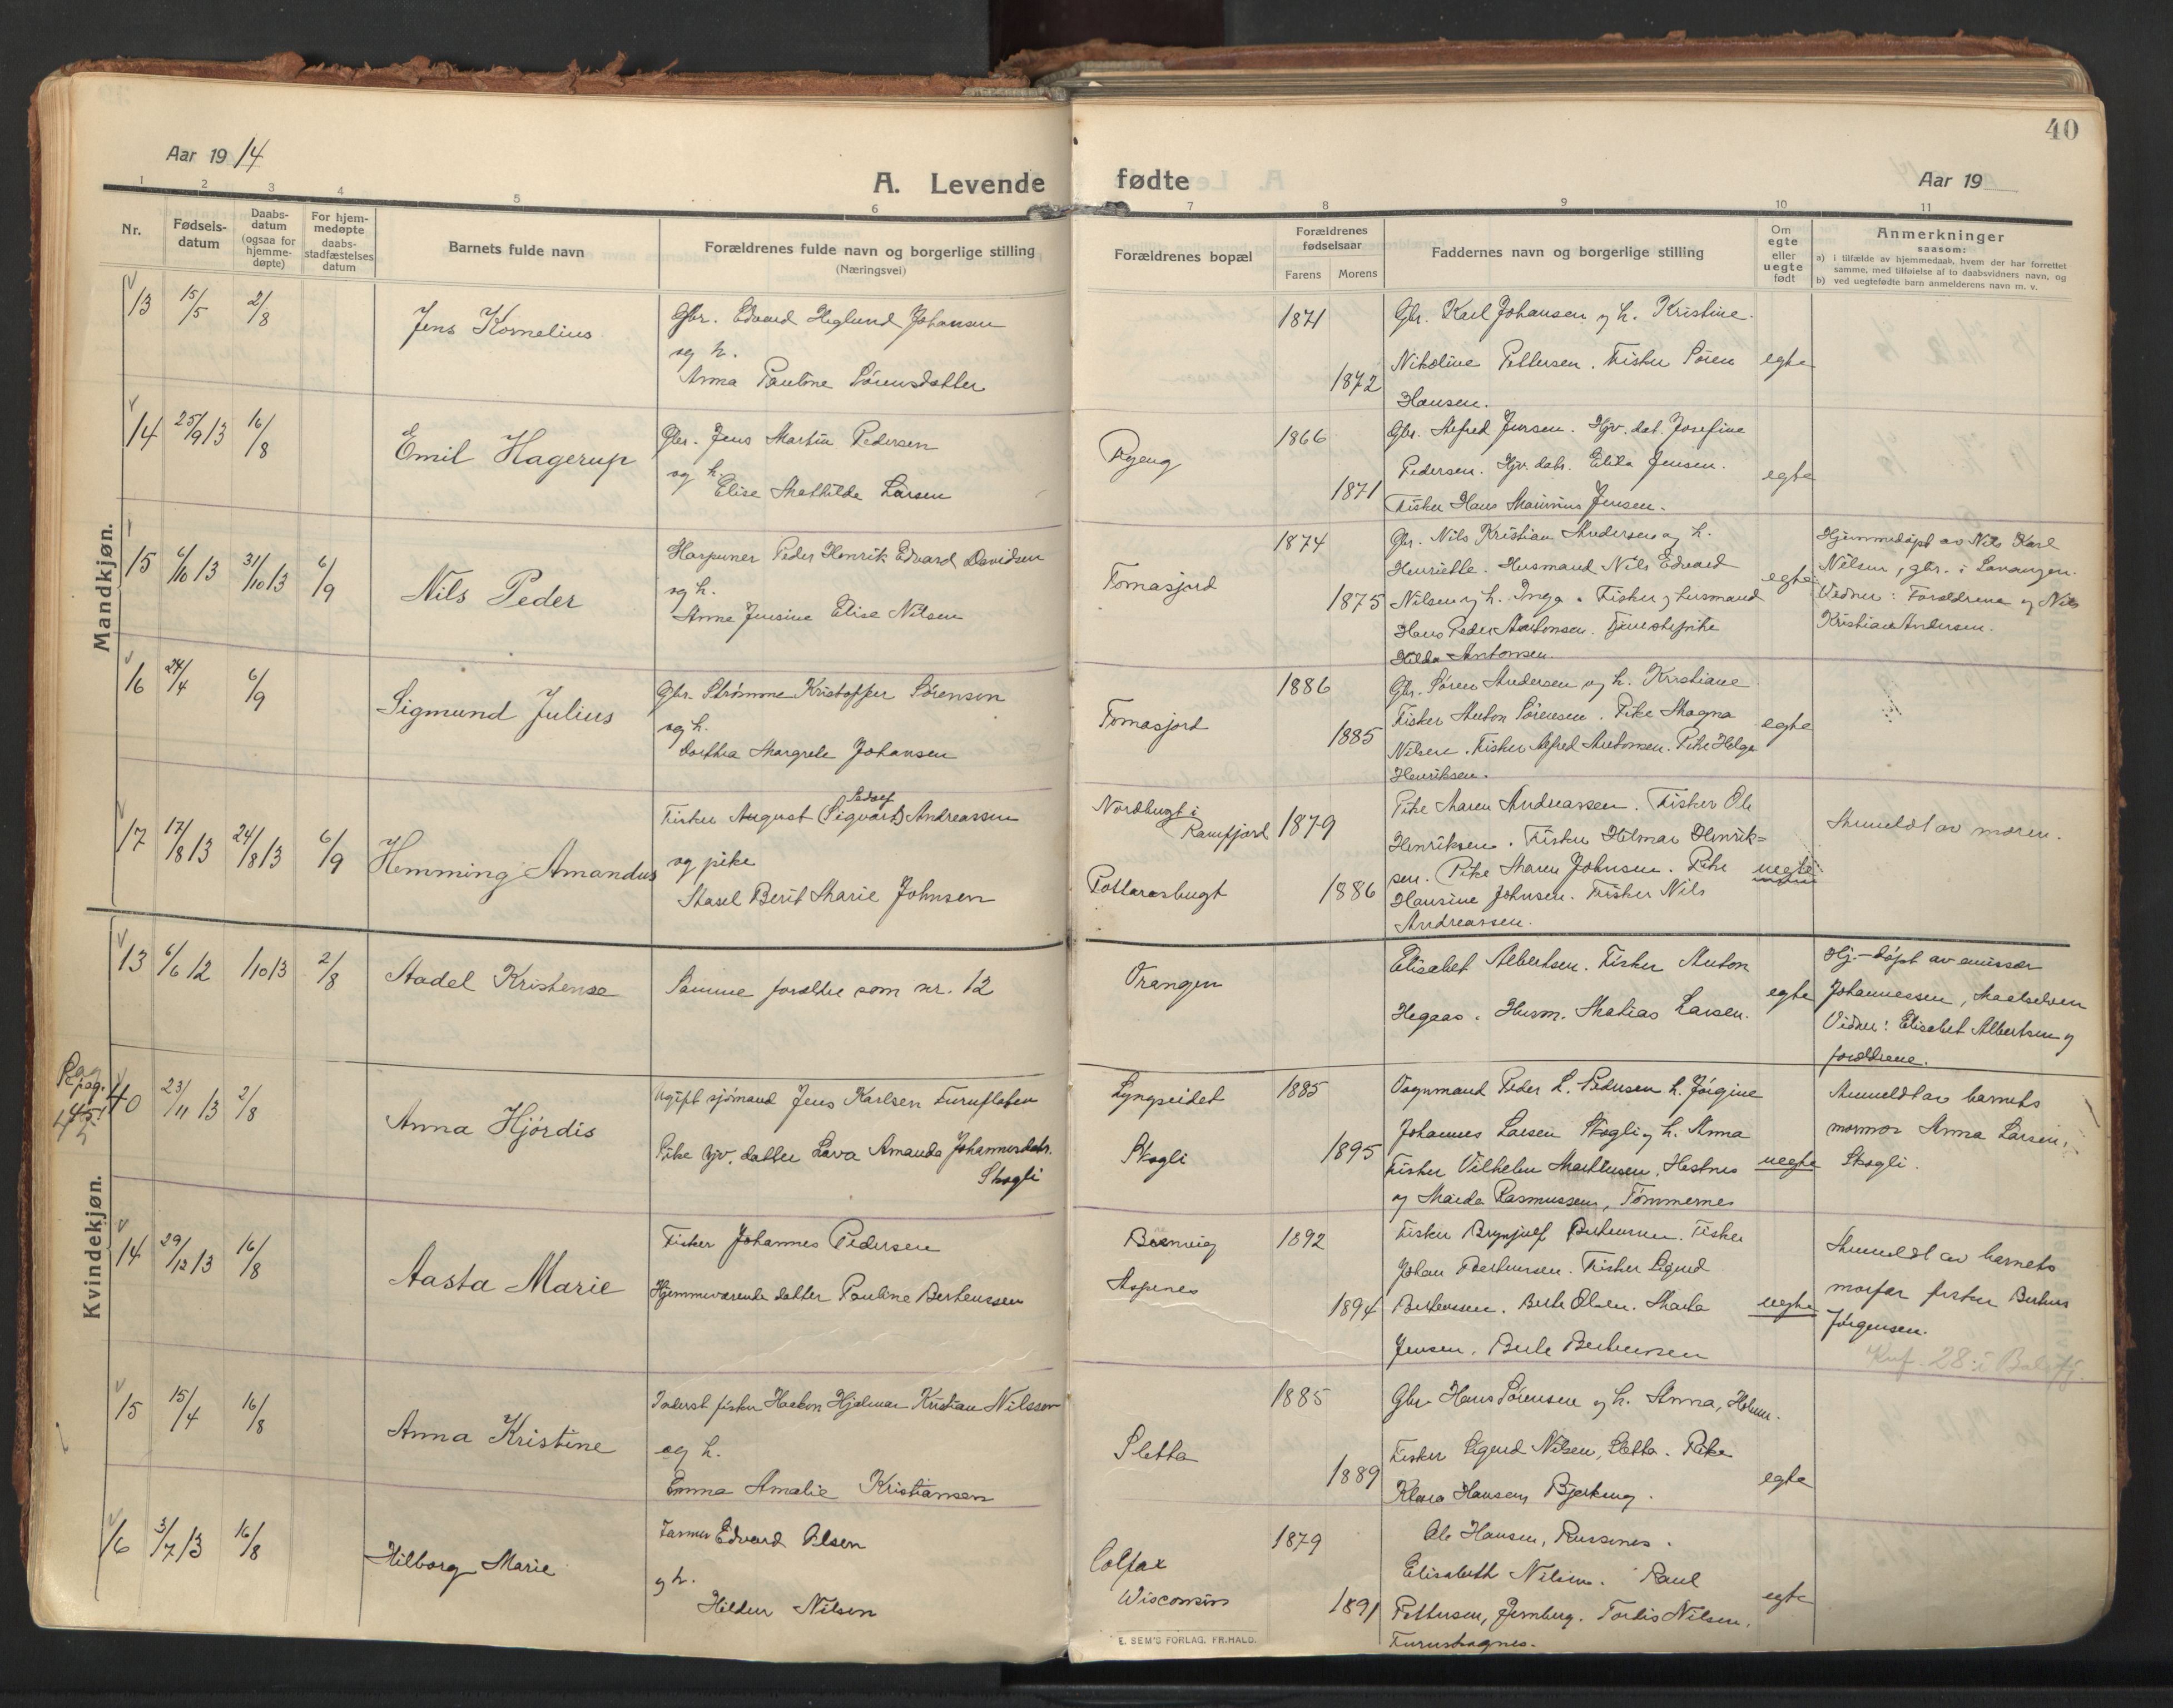 40
Aar 1914
A. Levende fødte
Aar 19
1 2 3 4 5 6 7 8 9 10 11
Nr.
Fødsels-
datum
Daabs-
datum
(ogsaa for
hjemme-
døpte)
For hjem-
medøpte
daabs-
stadfæstelses
datum
Barnets fulde navn
Forældrenes fulde navn og borgerlige stilling
(Næringsvei)
Forældrenes bopæl
Forældrenes
fødselsaar
Farens Morens
Faddernes navn og borgerlige stilling
Om
egte
eller
uegte
født
Anmerkninger
saasom:
a) i tilfælde av hjemmedaab, hvem der har forrettet
samme, med tilføielse af to daabsvidners navn, og
b) ved uegtefødte barn anmelderens navn m. v.
Mandkjøn.
13 15/5 2/8
Jens Kornelius
Gbr. Edvard Heglund Johansen
og h.
Anna Pauline Sørensdatter
1871
1872
Gbr. Karl Johansen og h. Kristine.
Nikoline Pettersen. Fisker Søren
Hansen.
egte
14 25/9 13 16/8
Emil Hagerup
Gbr. Jens Martin Pedersen
og h.
Elise Mathilde Larsen
1866
1871
Gbr. Alfred Jensen. Hjv. dat. Josefine
Pedersen. Hjv. datr. Elida Jensen.
Fisker Hans Marinius Jensen.
egte
15 6/10 13 31/10 13 6/9
Nils Peder
Harpuner Peder Henrik Edvard Davidsen
og h.
Anne Jensine Elise Nilsen
Tomasjord
1874
1875
Gbr. Nils Kristian Andersen og h.
Henriette. Husmand Nils Edvard
Nilsen og h. Inga. Fisker og husmand
Hans Peder Antonsen. Tjenestepike
Hilda Antonsen.
egte
Hjemmedøpt av Nils Karl
Nilsen, gbr. i Lavangen.
Vidner: Forældrene og Nils
Kristian Andersen.
16 24/4 6/9
Sigmund Julius
Gbr. Strømme Kristoffer Sørensen
og h.
Dorthea Margrete Johansen
Tomasjord
1886
1885
Gbr. Søren Andersen og h. Kristiane
Fisker Anton Sørensen. Pike Magna
Nilsen. Fisker Alfred Antonsen. Pike Helga
Henriksen.
egte
17 17/8 13 24/8 13 6/9
Hemming Amandus
Fisker August (Sigvart) Andreassen
og pike
Berit Marie Johnsen
Nordbugt i
Ramfjord
1879
1886
Pike Maren Andreassen. Fisker Ole
Henriksen. Fisker Hilmar Henrik=
sen. Pike Maren Johnsen. Pike
Hansine Johnsen. Fisker Nils
Andreassen.
uegte
Anmeldt av moren.
Kvindekjøn.
13 6/6 12 1/10 13 2/8
Aadel Kristense
Samme forældre som nr. 12
Elisabet Albertsen. Fisker Anton
Hegaas. Husm. Matias Larsen.
egte
Hj.-døpt av emissær
Johannessen, Maalselven
Vidner: Elisabet Albertsen og
forældrene.
pag.
45
10 23/11 13 2/8
Anna Hjørdis
Ugift sjømand Jens Karlsen Furuflaten
Pike hjv. datter Lava Amanda Johannesdatr.
Skogli
Lyngseidet
Skogli
1885
1895
Vognmand Peder L. Pedersen h. Jørgine
Johannes Larsen Skogli og h. Anna
Fisker Vilhelm Mathisen, Hestnes
og Marda Rasmussen, Tømmernes
uegte
Anmeldt av barnets
mormor Anna Larsen,
Skogli.
14 29/12 13 16/8
Aasta Marie
Fisker Johannes Pedersen
Hjemmeværende datter Pauline Berteussen
Aspenes
1892
1894
Fisker Brynjulf Berteussen. Fisker
Johan Berteussen. Fisker Sigurd
Berteussen. Berte Olsen. Marta
Jensen. Berte Berteussen
uegte
Anmeldt av barnets
morfar fisker Berteus
Jørgensen.
Knf. 28 i Balsfj.
15 15/4 16/8
Anna Kristine
fisker Haakon Hjalmar Kristian Nilssen
og h.
Emma Amalie Kristiansen
Sletta
1885
1889
Gbr. Hans Sørensen og h. Anna, Holmen.
Fisker Sigurd Nilsen, Sletta. Pike
Klara Hansen, Bjerkeng.
egte
16 3/7 13 16/8
Hilborg Marie
Farmer Edvard Olsen
og h.
Hildur Nilsen
Colfax
Wisconsin
1879
1891
Ole Hansen, Russenes.
Elisabeth Nilsen. Paul
Pettersen, Jernberg. Tordis Nilsen,
E. SEM'S FORLAG, FR.HALD.